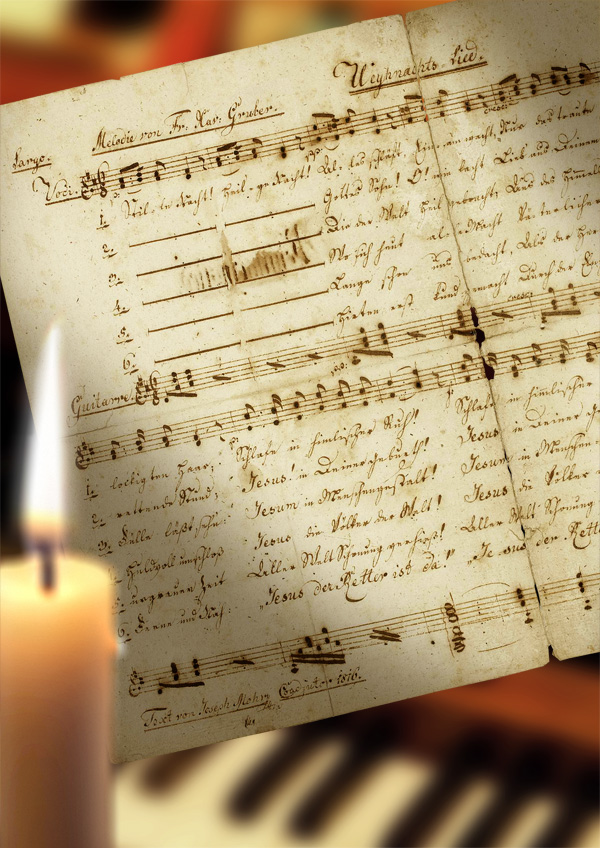 Weyhnachts-Lied.
Melodie von Fr: Xav: Gruber.
Largo.
Voci.
1. Stil-le Nacht! Heil-ge Nacht! Alles schläft, Einsam wacht, Nur das traute
2. Gottes Sohn! O! wie lacht Lieb aus Deinem
3. Die der Welt Heil gebracht; Aus des Himmels
4. Wo sich heut alle Macht Väterlicher
5. Lange schon uns bedacht, Als der Herr
6. Hirten erst kund gemacht Durch der
Guitarre.
1. lockigten Haar: Schlafe in himlischer Ruh! Schlafe in himlischer
2. rettende Stund: Jesus! in Deiner Geburth! Jesus in Deiner
3. Fülle läßt sehn: Jesum in Menschengestalt! Jesum in Menschen
Huldvoll umschloß Jesus die Völker der Welt! Jesus die Völker
urgrauer Zeit Aller Welt Schonung verhieß! Aller Welt Schonung
6. Ferne und Nah: „Jesus der Retter ist da!" „Jesus der Retter
Text von Joseph Mohr Coadjutor 1816.